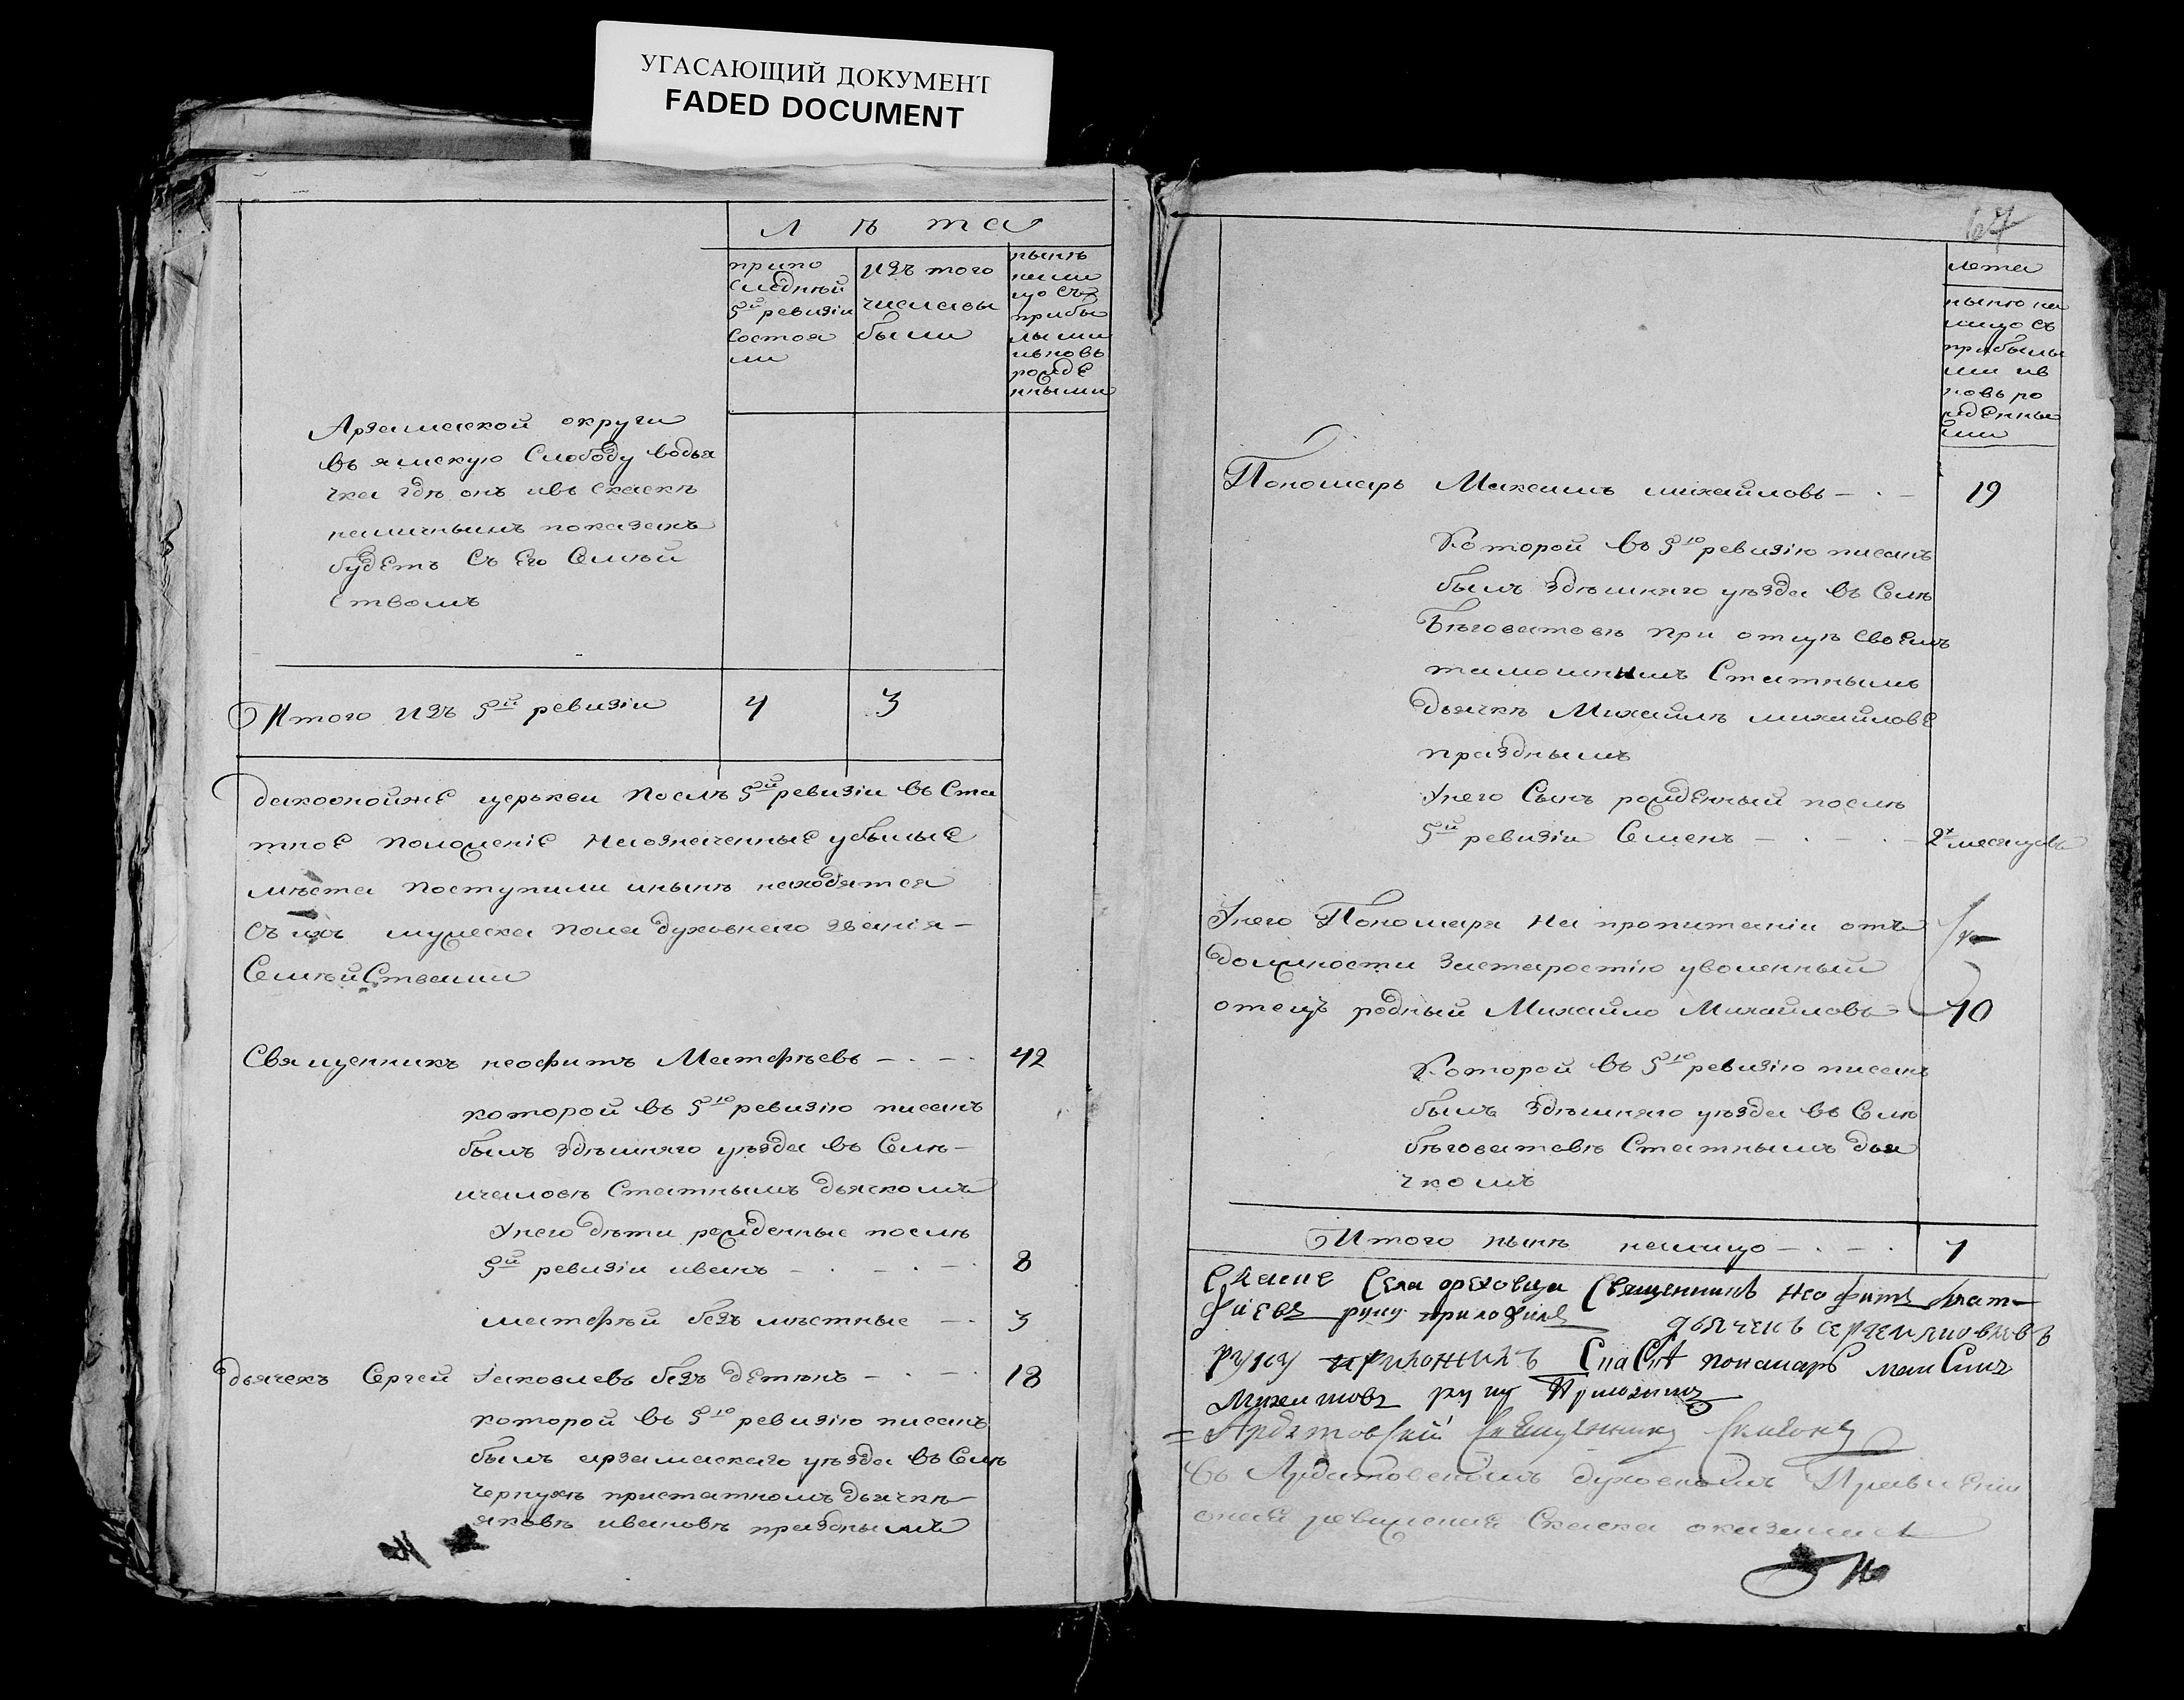 УГАСАЮЩИЙ ДОКУМЕНТ
FADED DOCUMENT
Лѣта
припо
следней
5й ревизiи
состоя
ли
изъ того
числа вы
были
нынѣ
нали
цо съ
прибы
лыми
и вновь
рожде
нными
Арзамаской округи
въ ямскую Слободу водья
чка гдѣ онъ ивъ сказкѣ
наличнымъ показанъ
будетъ съ его Семѣй
ствомъ
Итого изъ 5й ревизiи 4 3
да коспойже церькви послѣ 5й ревизiи въ Ста
тное положенiе на означенные убылые
мѣста поступили инынѣ находятся
съ ихъ мужеска пола духовнаго званiя —
Семѣйствами
Священникъ неофитъ Матфѣевъ — . — . 42
которой въ 5ю ревизiю писанъ
былъ здѣшняго уѣзда въ Селѣ —
ичаловѣ Статнымъ дьяскомъ
Унего дѣти рожденные послѣ
5й ревизiи иванъ — . — . — . 8
матфѣй безъ мѣстные — . 3
дьячекъ Сергей Иаковлевъ безъ детенъ — . — . 18
которой въ 5ю ревизiю писанъ
былъ арзамаскаго уѣзда въ Селѣ
чернухѣ пристатномъ дьячкѣ
яковѣ ивановѣ празднымъ
67
лета
ныне на
лицо съ
прибылы
ми ив
новь ро
жденны
ми
Пономарь Максимъ михайловъ — . — 19
Которой въ 5ю ревизiю писанъ
былъ здѣшняго уѣзда въ Селѣ
Бѣговатовѣ при отцѣ своемъ
тамошнимъ Статнымъ
дьячкѣ Михайлѣ михайлове
празднымъ
Унего Сынъ рожденный послѣ
5й ревизiи Семенъ — . — . — 2х месяцовъ
Унего Пономаря на пропитанiи отъ
должности застаростiю уволенный
отецъ родный Михайло Михайловъ 70
Которой въ 5ю ревизiю писанъ
былъ здѣшняго уѣзда въ Селѣ
бѣговатовѣ Статнымъ дья
чкомъ
Итого нынѣ налицо — . — . 7
Села ореховца Священникъ неофитъ Мат—
фiевъ руку приложилъ дьячекъ сергей яковлевъ
руку приложилъ пономарь максимъ
михаиловъ руку приложилъ
= Ардатовскiй Священникъ
въ Ардатовскомъ духовномъ Правленiи